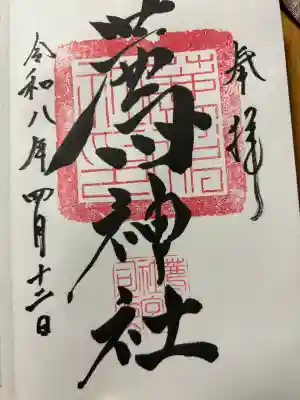 奉拝
薦神社
令和八年四月十二日